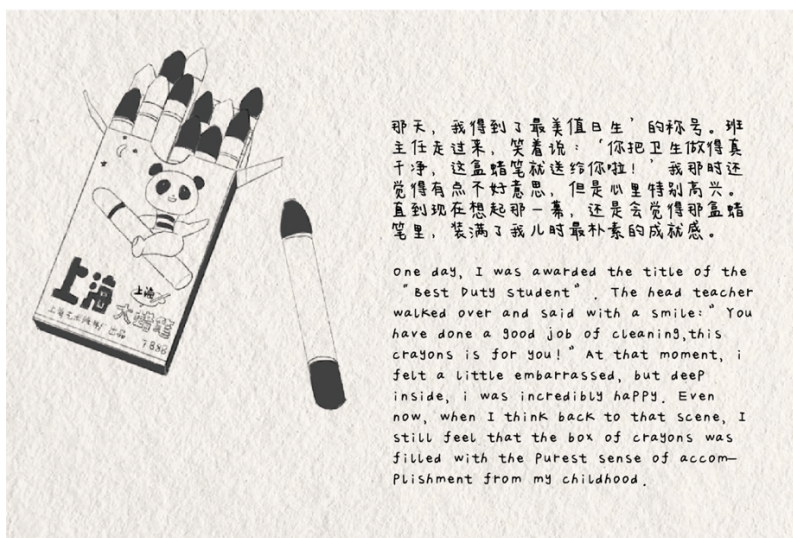 上海
上海
大蜡笔
出品
那天，我得到了最美值日生’的称号。班
主任走过来，笑着说：‘你把卫生做得真
干净，这盒蜡笔就送给你啦！’我那时还
觉得有点不好意思，但是心里特别高兴。
直到现在想起那一幕，还是会觉得那盒蜡
笔里，装满了我儿时最朴素的成就感。
One day, I was awarded the title of the
"Best Duty student". The head teacher
walked over and said with a smile:" You
have done a good job of cleaning,this
crayons is for you!" At that moment, i
felt a little embarrassed, but deep
inside, i was incredibly happy. Even
now, when I think back to that scene, I
still feel that the box of crayons was
filled with the Purest sense of accom—
Plishment from my childhood.